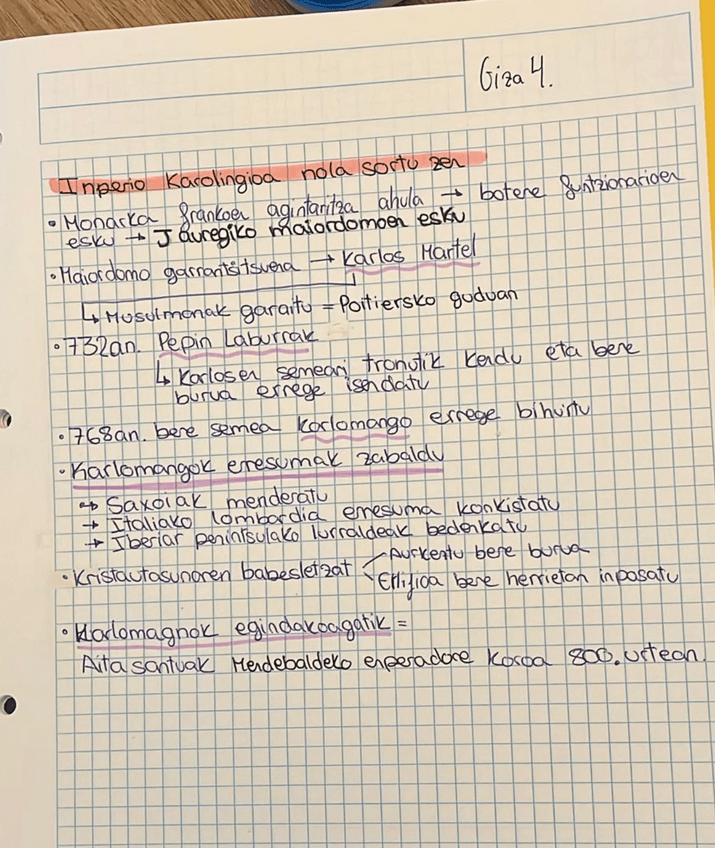 Giza 4.
Inperio Karolingioa nola sortu zen
• Monarka frankoen agintaritza ahula → botere funtzionarioen
esku → Jauregiko maiordomoen esku
• Maiordomo garrantsitsuena → Karlos Martel
↳ Musulmanak garaitu = Poitiersko guduan
• 732an. Pepin Laburrak
↳ Karlosen semeari tronutik kendu eta bere
burua errege isendatu
• 768an. bere semea Karlomango errege bihurtu
• Karlomangok erresumak zabaldu
→ Saxoiak menderatu
→ Italiako lombardia erresuma konkistatu
→ Iberiar penintsulako lurraldeak bederkatu
• Kristautasunaren babesletzat Aurkeztu bere burua
Erlijioa bere herrietan inposatu
• Karlomagnok egindakoagatik =
Aita santuak Mendebaldeko enperadore Koroa 800. urtean.